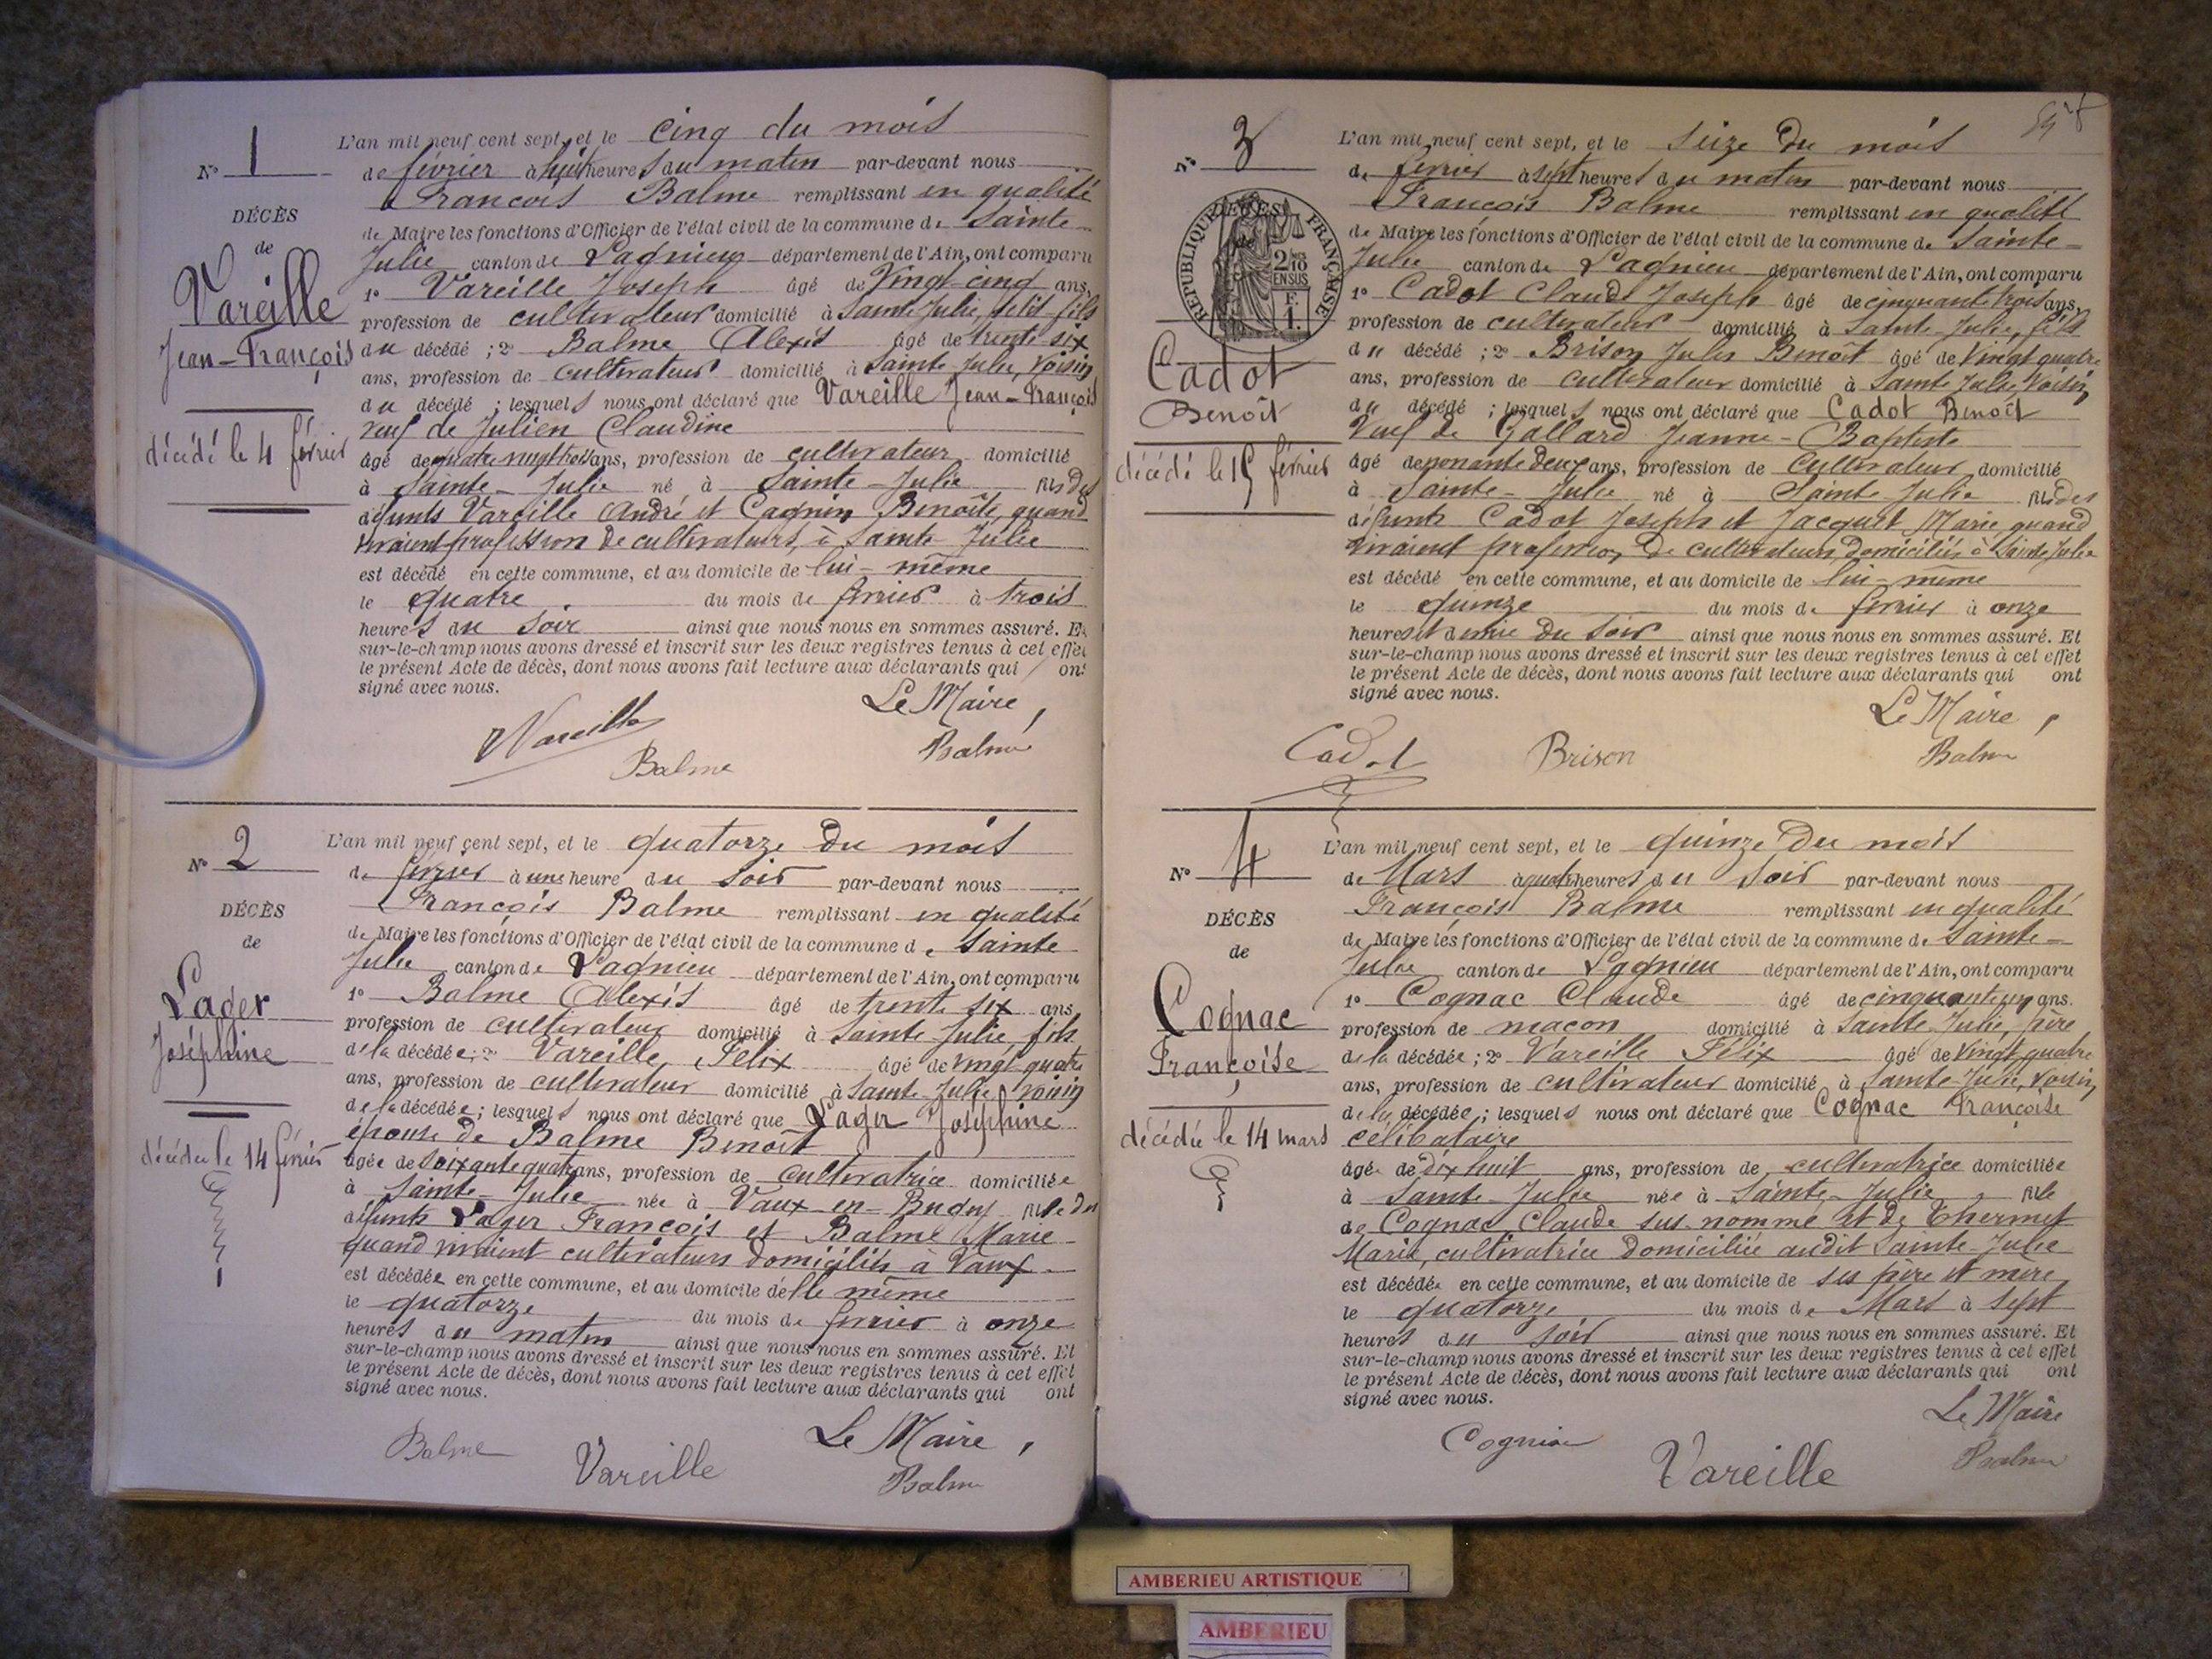 L'an mil neuf cent sept, et le cinq du mois
N° 1
de février à huit heures du matin par-devant nous
François Balme remplissant en qualité
DÉCÈS
de Maire les fonctions d'Officier de l'état civil de la commune de Sainte-
de
Julie canton de Lagnieu département de l'Ain, ont comparu
Vareille
1° Vareille Joseph âgé de Vingt-cinq ans,
profession de cultivateur domicilié à Sainte Julie, petit-fils
Jean-François
du décédé ; 2° Balme Alexis âgé de trente-six
ans, profession de cultivateur domicilié à Sainte Julie, voisin
du décédé ; lesquels nous ont déclaré que Vareille Jean-François
veuf de Julien Claudine
décédé le 4 février
âgé de quatre vingt trois ans, profession de cultivateur domicilié
à Sainte-Julie né à Sainte-Julie fils des
défunts Vareille André et Cagnin Benoîte, quand
vivaient profession de cultivateurs, à Sainte Julie
est décédé en cette commune, et au domicile de lui-même
le quatre du mois de février à trois
heures du soir ainsi que nous nous en sommes assuré. Et
sur-le-champ nous avons dressé et inscrit sur les deux registres tenus à cet effet
le présent Acte de décès, dont nous avons fait lecture aux déclarants qui ont
signé avec nous.
Le Maire,
Vareille
Balme
Balme
L'an mil neuf cent sept, et le quatorze du mois
N° 2
de février à une heure du soir par-devant nous
François Balme remplissant en qualité
DÉCÈS
de Maire les fonctions d'Officier de l'état civil de la commune de Sainte
de
Julie canton de Lagnieu département de l'Ain, ont comparu
Lager
1° Balme Alexis âgé de trente six ans
profession de cultivateur domicilié à Sainte Julie, fils
Joséphine
de la décédée; 2° Vareille Félix âgé de vingt quatre
ans, profession de cultivateur domicilié à Sainte-Julie voisin
de la décédée; lesquels nous ont déclaré que Lager Joséphine
épouse de Balme Benoît
décédée le 14 février
âgée de soixante quatre ans, profession de cultivatrice domiciliée
à Sainte-Julie née à Vaux-en-Bugey fille des
défunts Lager François et Balme Marie
quand vivaient cultivateurs domiciliés à Vaux
est décédée en cette commune, et au domicile d'elle même
le quatorze du mois de février à onze
heures du matin ainsi que nous nous en sommes assuré. Et
sur-le-champ nous avons dressé et inscrit sur les deux registres tenus à cet effet
le présent Acte de décès, dont nous avons fait lecture aux déclarants qui ont
signé avec nous.
Le Maire,
Balme
Vareille
Balme
L'an mil neuf cent sept, et le seize du mois
N° 3
de février à sept heures du matin par-devant nous
François Balme remplissant en qualité
DÉCÈS
RÉPUBLIQUE FRANÇAISE
2/10 EN SUS
F. 1.
de Maire les fonctions d'Officier de l'état civil de la commune de Sainte-
Julie canton de Lagnieu département de l'Ain, ont comparu
1° Cadot Claude Joseph âgé de cinquante trois ans,
profession de cultivateur domicilié à Sainte-Julie, fils
du décédé ; 2° Brison Jules Benoît âgé de vingt quatre
Cadot
ans, profession de cultivateur domicilié à Sainte Julie, Voisin
Benoît
du décédé ; lesquels nous ont déclaré que Cadot Benoît
Veuf de Gallard Jeanne-Baptiste
décédé le 15 février
âgé de nonante deux ans, profession de Cultivateur domicilié
à Sainte-Julie né à Sainte Julie fils des
défunts Cadot Joseph et Jacquet Marie quand
vivaient profession de cultivateurs domiciliés à Sainte Julie
est décédé en cette commune, et au domicile de lui-même
le quinze du mois de février à onze
heures et demie du soir ainsi que nous nous en sommes assuré. Et
sur-le-champ nous avons dressé et inscrit sur les deux registres tenus à cet effet
le présent Acte de décès, dont nous avons fait lecture aux déclarants qui ont
signé avec nous.
Le Maire,
Cadot
Brison
Balme
L'an mil neuf cent sept, et le quinze du mois
N° 4
de Mars à quatre heures du soir par-devant nous
François Balme remplissant en qualité
DÉCÈS
de Maire les fonctions d'Officier de l'état civil de la commune de Sainte-
de
Julie canton de Lagnieu département de l'Ain, ont comparu
Cognac
1° Cognac Claude âgé de cinquante un ans.
profession de maçon domicilié à Sainte Julie, père
Françoise
de la décédée ; 2° Vareille Félix âgé de Vingt quatre
ans, profession de cultivateur domicilié à Sainte-Julie, Voisin
de la décédée ; lesquels nous ont déclaré que Cognac Françoise
décédée le 14 mars
célibataire
âgée de dix huit ans, profession de cultivatrice domiciliée
à Sainte-Julie née à Sainte-Julie fille
de Cognac Claude sus-nommé et de Thermet
Marie, cultivatrice domiciliée audit Sainte-Julie
est décédée en cette commune, et au domicile de ses père et mère
le quatorze du mois de Mars à sept
heures du soir ainsi que nous nous en sommes assuré. Et
sur-le-champ nous avons dressé et inscrit sur les deux registres tenus à cet effet
le présent Acte de décès, dont nous avons fait lecture aux déclarants qui ont
signé avec nous.
Le Maire
Vareille
Balme
AMBERIEU ARTISTIQUE
AMBERIEU